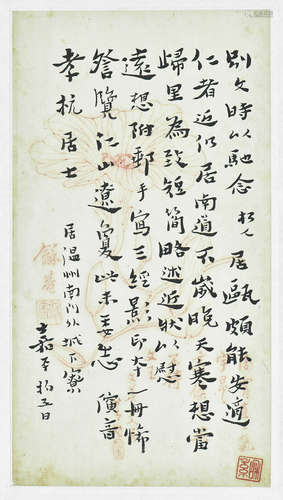 別久時以馳念朽人居甌頗能安適
仁者近仍居南通不歲晚天寒想當
歸里為致短簡略述近狀以慰
遠想附郵手寫三經影印本一冊希
詧覽江山遼夐此未委悉 演音
孝杭居士
居温州南門外城下寮
嘉平初五日